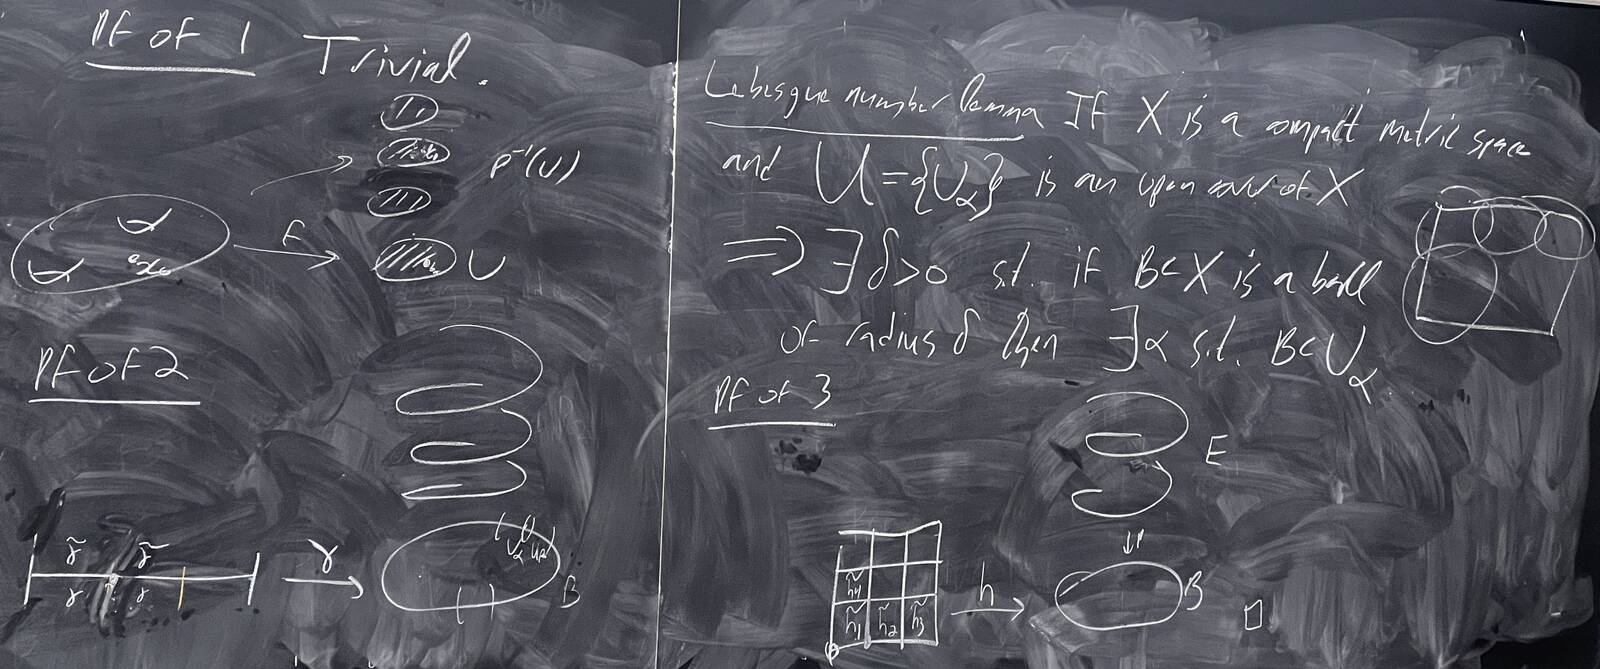 Pf of 1 Trivial.
p⁻¹(U)
f
x₀
U
Pf of 2
γ̃ γ̃
γ γ
γ
U_α
B
Lebesgue number lemma If X is a compact metric space
and U = {U_α} is an open cover of X
⇒ ∃ δ>0 s.t. if B⊂X is a ball
of radius δ then ∃α s.t. B⊂U_α
Pf of 3
E
↓p
h̃₄
h̃₁ h̃₂ h̃₃
h
B
□